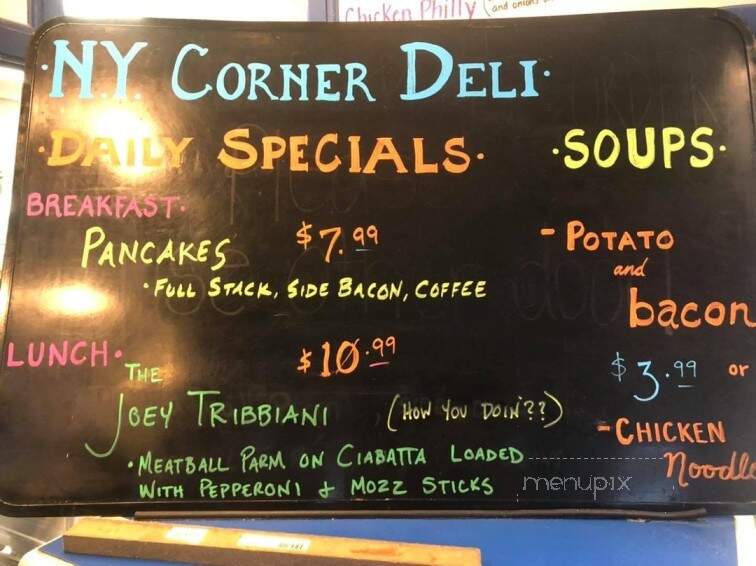 Chicken Philly (and onions
·N.Y. CORNER DELI·
·DAILY SPECIALS·
BREAKFAST·
PANCAKES $7.99
·FULL STACK, SIDE BACON, COFFEE
LUNCH· $10.99
THE
JOEY TRIBBIANI (HOW YOU DOIN'??)
·MEATBALL PARM ON CIABATTA LOADED
WITH PEPPERONI & MOZZ STICKS
·SOUPS·
- POTATO
and
bacon
$3.99 or
- CHICKEN
Noodle
menupix